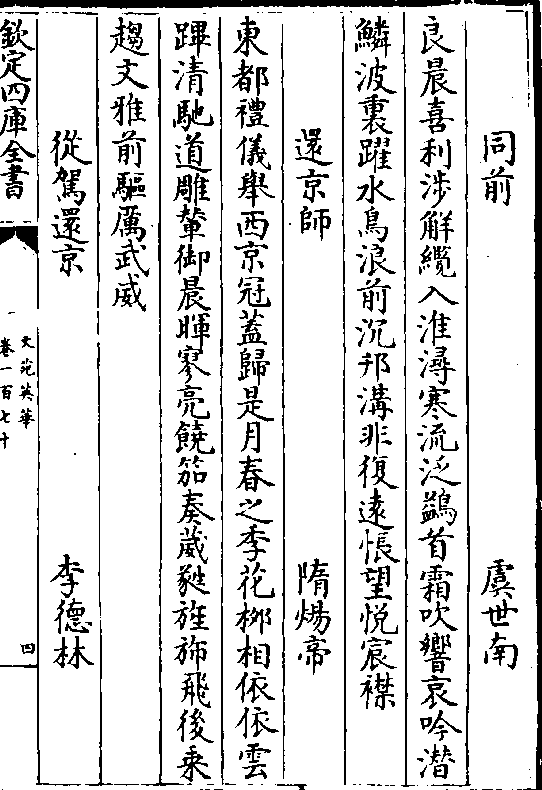 同前　虞世南
良晨喜利涉解纜入淮潯寒流泛鷁首霜吹響哀吟潛
鱗波裏躍水鳥浪前沉邗溝非復遠悵望悦宸襟
還京師　隋煬帝
東都禮儀舉西京冠蓋歸是月春之季花桞相依依雲
蹕清馳道雕輦御晨暉寥亮鐃笳奏葳蕤旌斾飛後乗
趨文雅前驅厲武威
從駕還京　李德林
欽定四庫全書
文苑英華
卷一百七十
四